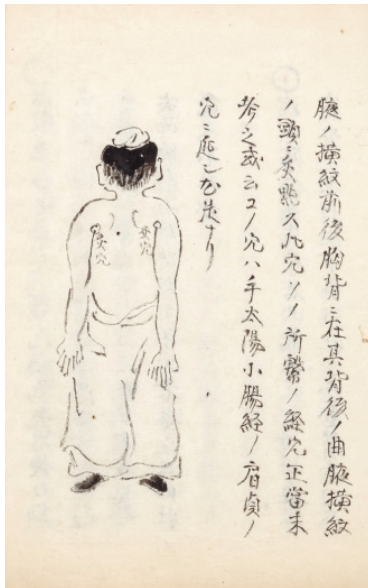 腋ノ横紋前後胸背ニ在其背後ノ曲腋横紋
ノ頭ニ灸點ス此穴ソノ所繋ノ経穴正當未
考之或云コノ穴ハ手太陽小腸経ノ肩貞ノ
穴ニ庶シカ
灸穴
灸穴